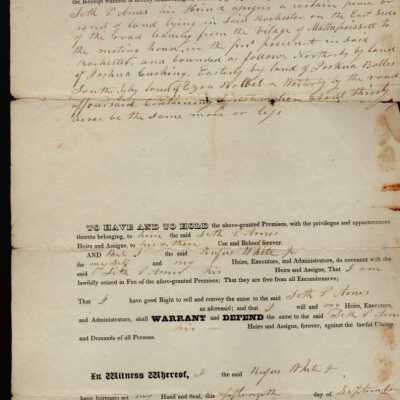 Seth P Ames his Heirs & Assigns a certain piece or
parcel of land lying in said Rochester on the East side
of the road leading from the Village of Mattapoisett to
the meeting house in the first precinct in said
Rochester, and bounded as follows Northerly by land
of Joshua Cushing, Easterly by land of Joshua Bolles
Southerly by land of Ezra & Westerly by the road
aforesaid, containing by estimation about thirty
acres be the same more or less
TO HAVE AND TO HOLD the above-granted Premises, with the privileges and appurtenances
thereto belonging, to him the said Seth P Ames
Heirs and Assigns, to his & their Use and Behoof forever.
AND I the said Rufus White Jr
for myself and my Heirs, Executors, and Administrators, do covenant with the
said Seth P Ames his Heirs and Assigns, That I am
lawfully seized in Fee of the above-granted Premises; That they are free from all Encumbrances;
That I have good Right to sell and convey the same to the said Seth P Ames
as aforesaid; and that I will and my Heirs, Executors,
and Administrators, shall WARRANT and DEFEND the same to the said Seth P Ames
his Heirs and Assigns, forever, against the lawful Claims
and Demands of all Persons.
In Witness Whereof, I the said Rufus White Jr
have hereunto set my Hand and Seal, this day of September